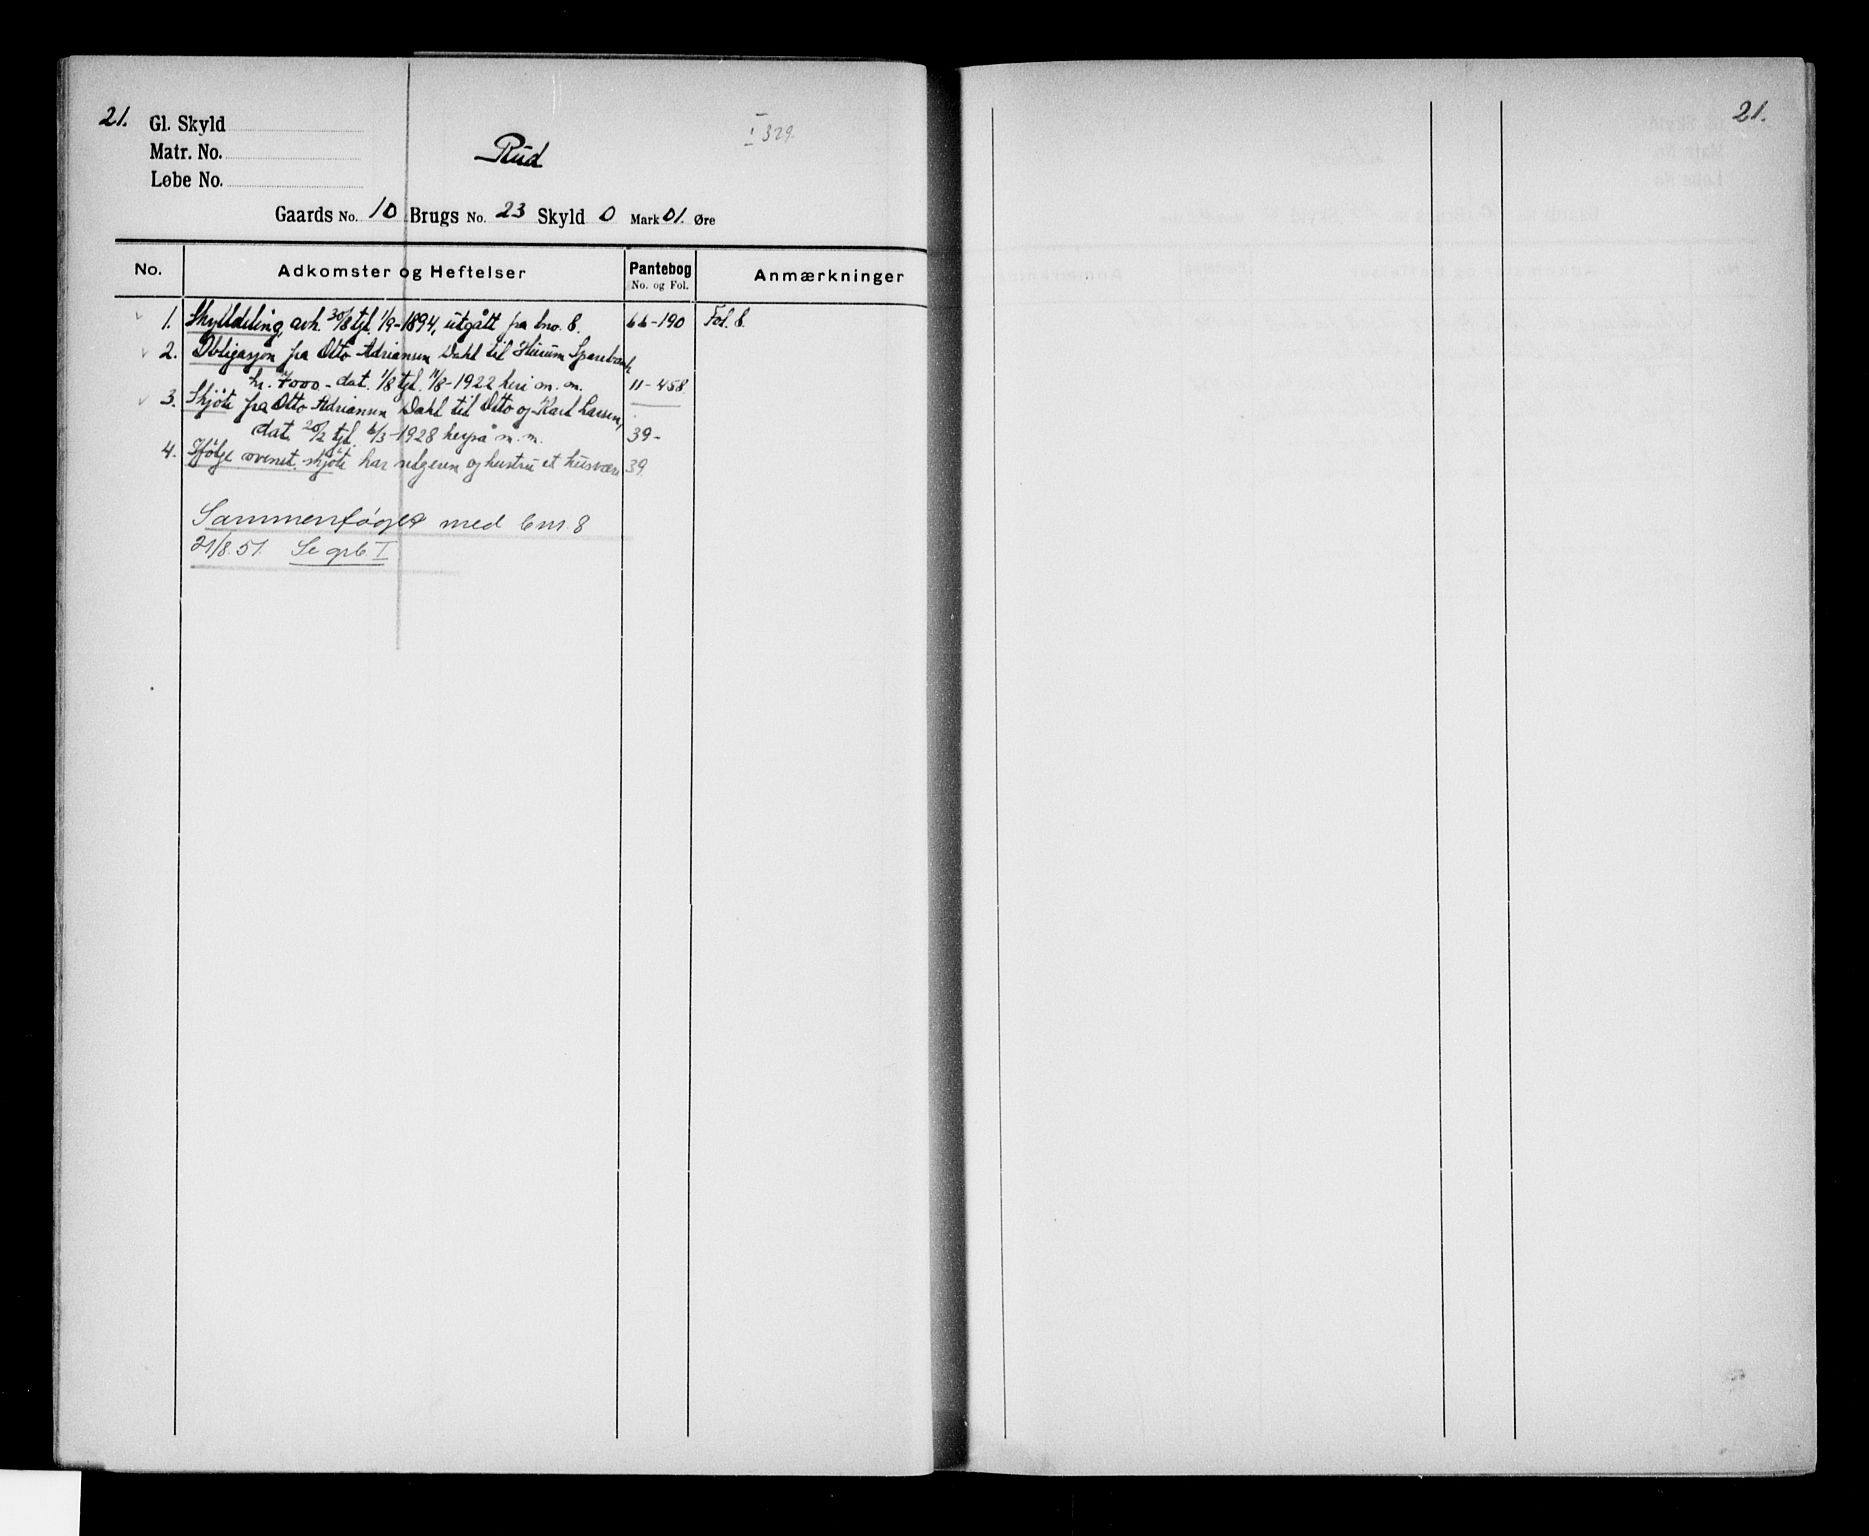 21.
Gl. Skyld
Matr. No.
Løbe No.
I 329.
Rud
Gaards No. 10 Brugs No. 23 Skyld 0 Mark 01. Øre
No. Adkomster og Heftelser Pantebog No. og Fol. Anmærkninger
1. Skylldeling avh. 30/8 tgl. 1/9-1894, utgått fra bno. 8. 66-190 Fol. 6.
2. Obligasjon fra Otto Adriansen Dahl til Hurum Sparebank
kr. 7000 - dat. 1/8 tgl. 11/8-1922 heri m. m. 11-458
3. Skjøte fra Otto Adriansen Dahl til Otto og Karl Larsen,
dat. 20/2 tgl. 6/3-1928 herpå m. m. 39-
4. Ifølge ovenst. skjøte har selgeren og hustru et husvære 39.
Sammenføyet med bnr. 8
21/8.51. Se grb I
21.